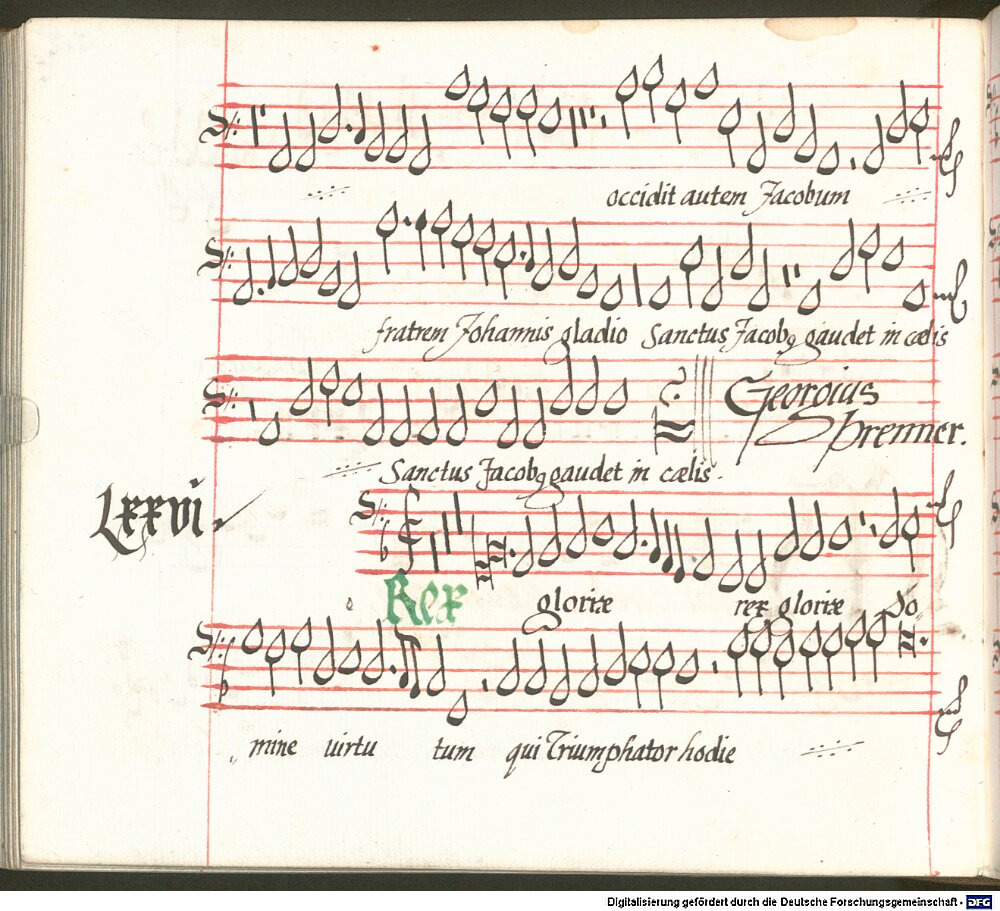 occidit autem Jacobum
fratrem Johannis gladio Sanctus Jacobꝯ gaudet in cælis
Georgius
Prenner.
Sanctus Jacobꝯ gaudet in cælis.
LXXVI.
O Rex gloriæ rex gloriæ Do
mine uirtu tum qui Triumphator hodie
Digitalisierung gefördert durch die Deutsche Forschungsgemeinschaft - DFG